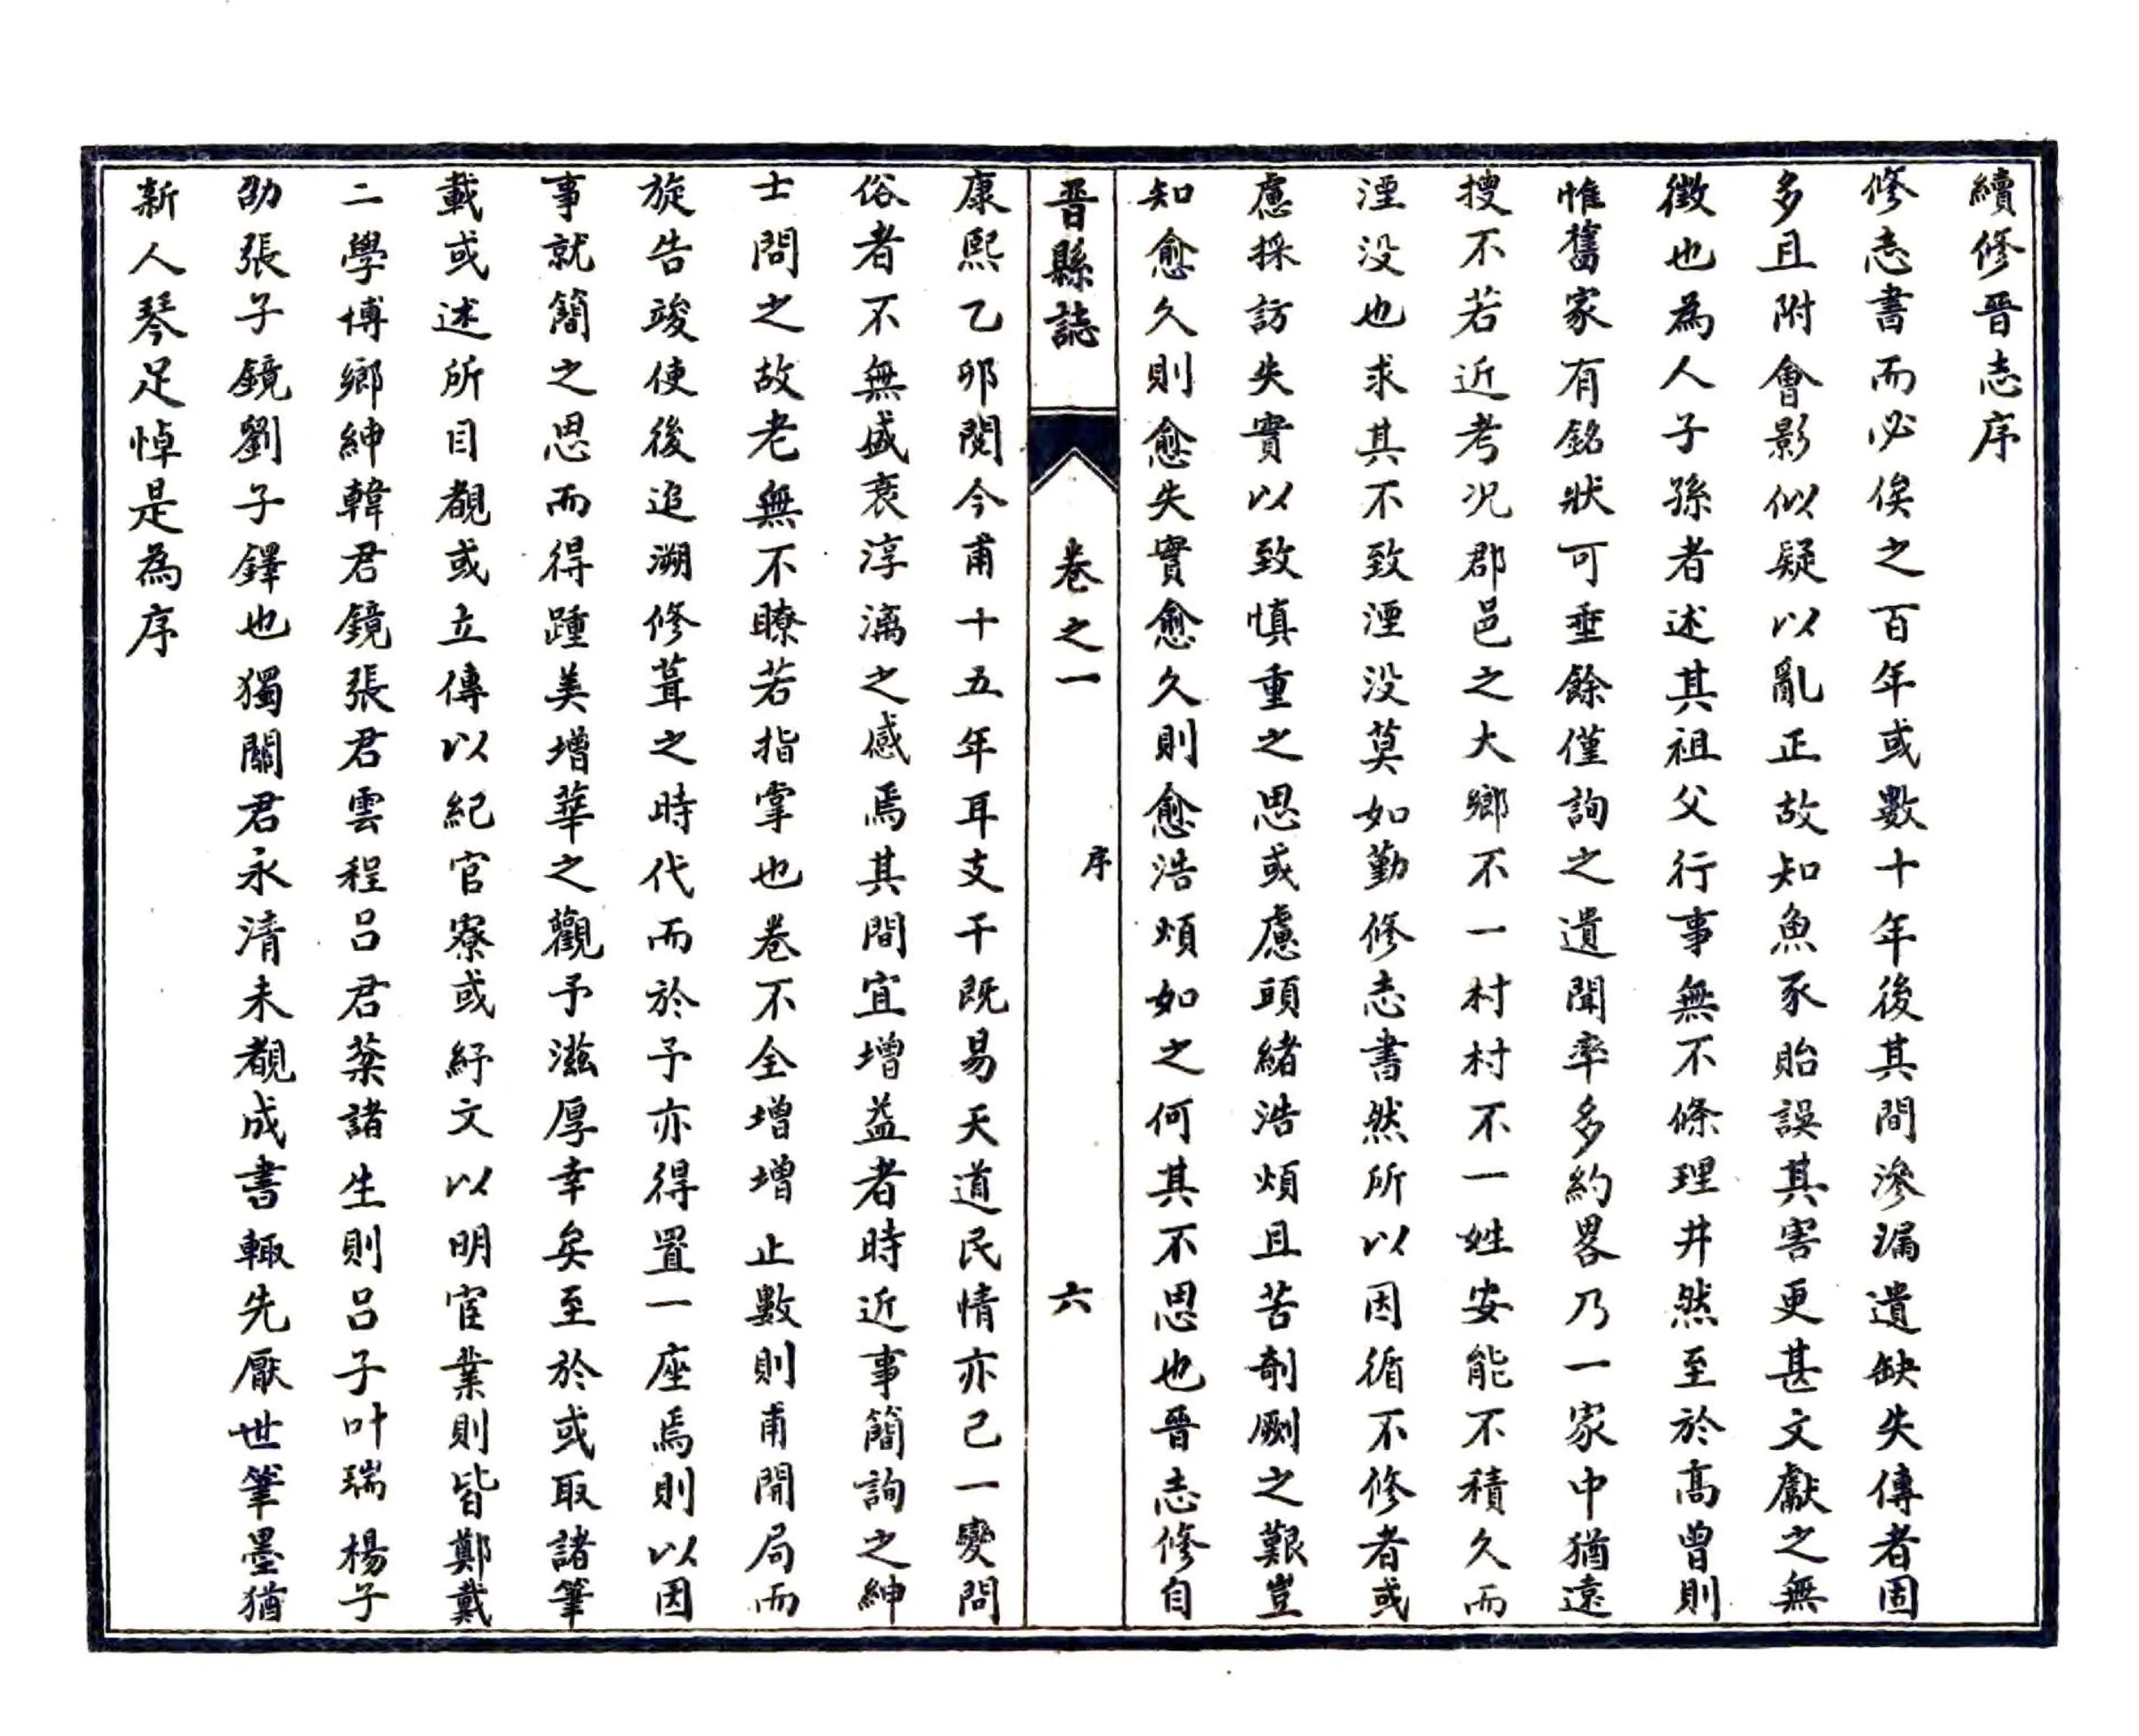 續修晉志序
修志書而必俟之百年或數十年後其間滲漏遺缺失傳者固
多且附會影似疑以亂正故知魚豕貽誤其害更甚文獻之無
徵也為人子孫者述其祖父行事無不條理井然至於高曾則
惟舊家有銘狀可垂餘僅詢之遺聞率多約畧乃一家中猶遠
搜不若近考况郡邑之大鄉不一村村不一姓安能不積久而
湮没也求其不致湮没莫如勤修志書然所以因循不修者或
慮採訪失實以致慎重之思或慮頭緒浩煩且苦剞劂之艱豈
知愈久則愈失實愈久則愈浩煩如之何其不思也晉志修自
晉縣誌 卷之一 序 六
康熙乙卯閱今甫十五年耳支干既易天道民情亦已一變問
俗者不無盛衰淳漓之感焉其間宜增益者時近事簡詢之紳
士問之故老無不瞭若指掌也卷不全增增止數則甫開局而
旋告竣使後追溯修葺之時代而於予亦得置一座焉則以因
事就簡之思而得踵美增華之觀予滋厚幸矣至於或取諸筆
載或述所目覩或立傳以紀官寮或紓文以明宦業則皆鄭戴
二學博鄉紳韓君鏡張君雲程呂君葉諸生則呂子叶瑞楊子
劭張子鏡劉子鐸也獨關君永清未覩成書輒先厭世筆墨猶
新人琴足悼是為序